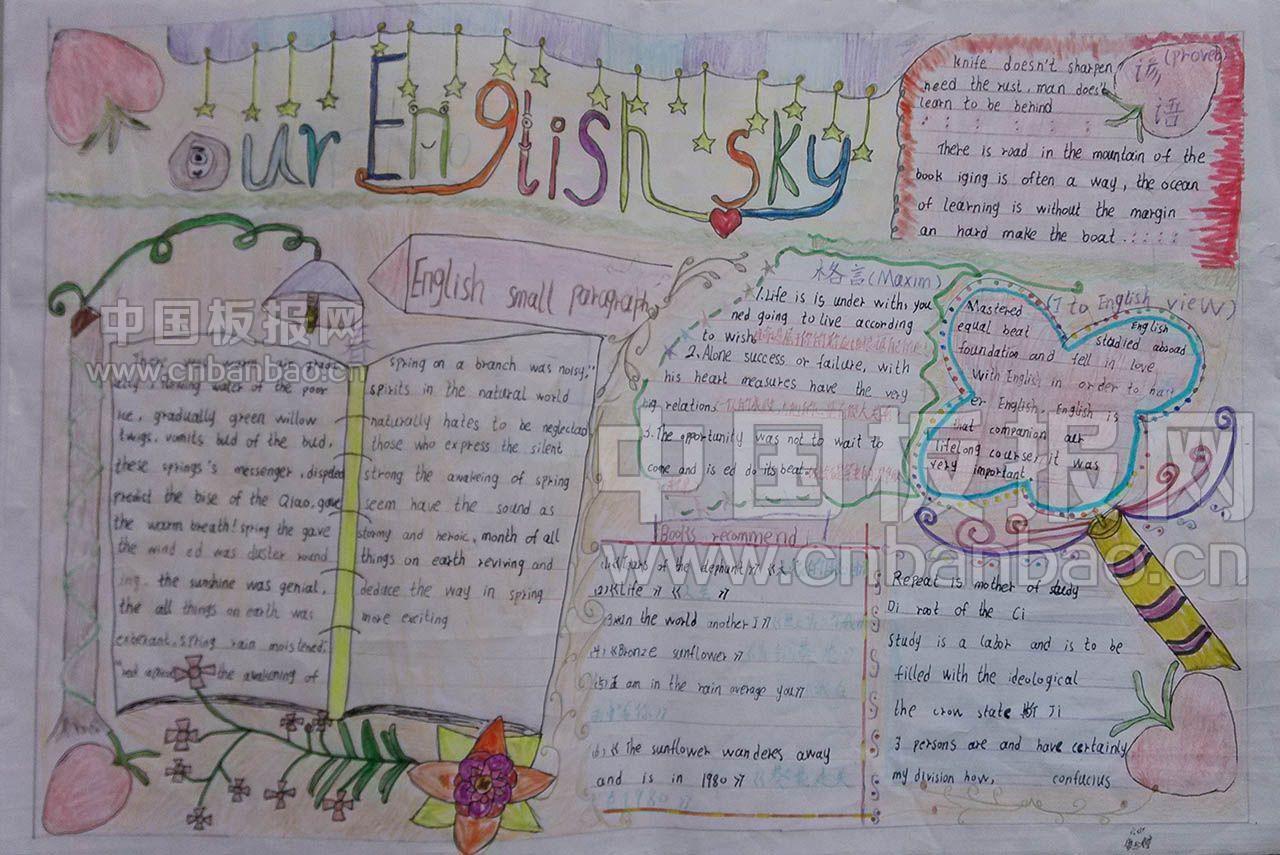 our English sky
谚语 (proveb)
knife doesn't sharpen
need the rust, man does't
learn to be behind
There is road in the mountain of the
book iging is often a way, the ocean
of learning is without the margin
an hard make the boat
English small paragraph
There was warm rain
water of the poor
ice, gradually green willow
twigs, vomits bud of the bud,
these springs's messenger, dispeled
predict the bise of the Qiao, gave
the warm breath! spring the gave
the wind ed was duster round
ing, the sunshine was genial,
the all things on earth was
exberant, spring rain moistened,
the awakening of
spring on a branch was noisy,"
spirits in the natural world
naturally hates to be neglected
those who express the silent
strong the awakeing of spring
seem have the sound as
stormy and heroic, month of all
things on earth reviving and
deduce the way in spring
more exciting
格言 (Maxim)
1.Life is is under with, you
ned going to live according
to wish
2.Alone success or failure, with
his heart measures have the very
big relation.
3.The opportunity was not to wait to
come and is ed do its beat.
(I to English view)
Mastered English
equal beat stadied abroad
foundation and fell in love
With English in order to mast
er English, English is
that companion our
lifelong courser, it was
very important
Books recommend
(1)《Tears of the elephant》
(2)《Life》
(3)《in the world another I》
(4)《Bronze sunflower》
(5)I am in the rain average you》
(6)《The sunflower wanderes away
and is in 1980》
1980》
Repeat is mother of study
Di root of the Ci
study is a labor and is to be
filled with the ideological
the crow state 斯 Ji
3 persons are and have certainly
my division how, confucius
中国板报网
www.cnbanbao.cn
中国板报网
www.cnbanbao.cn